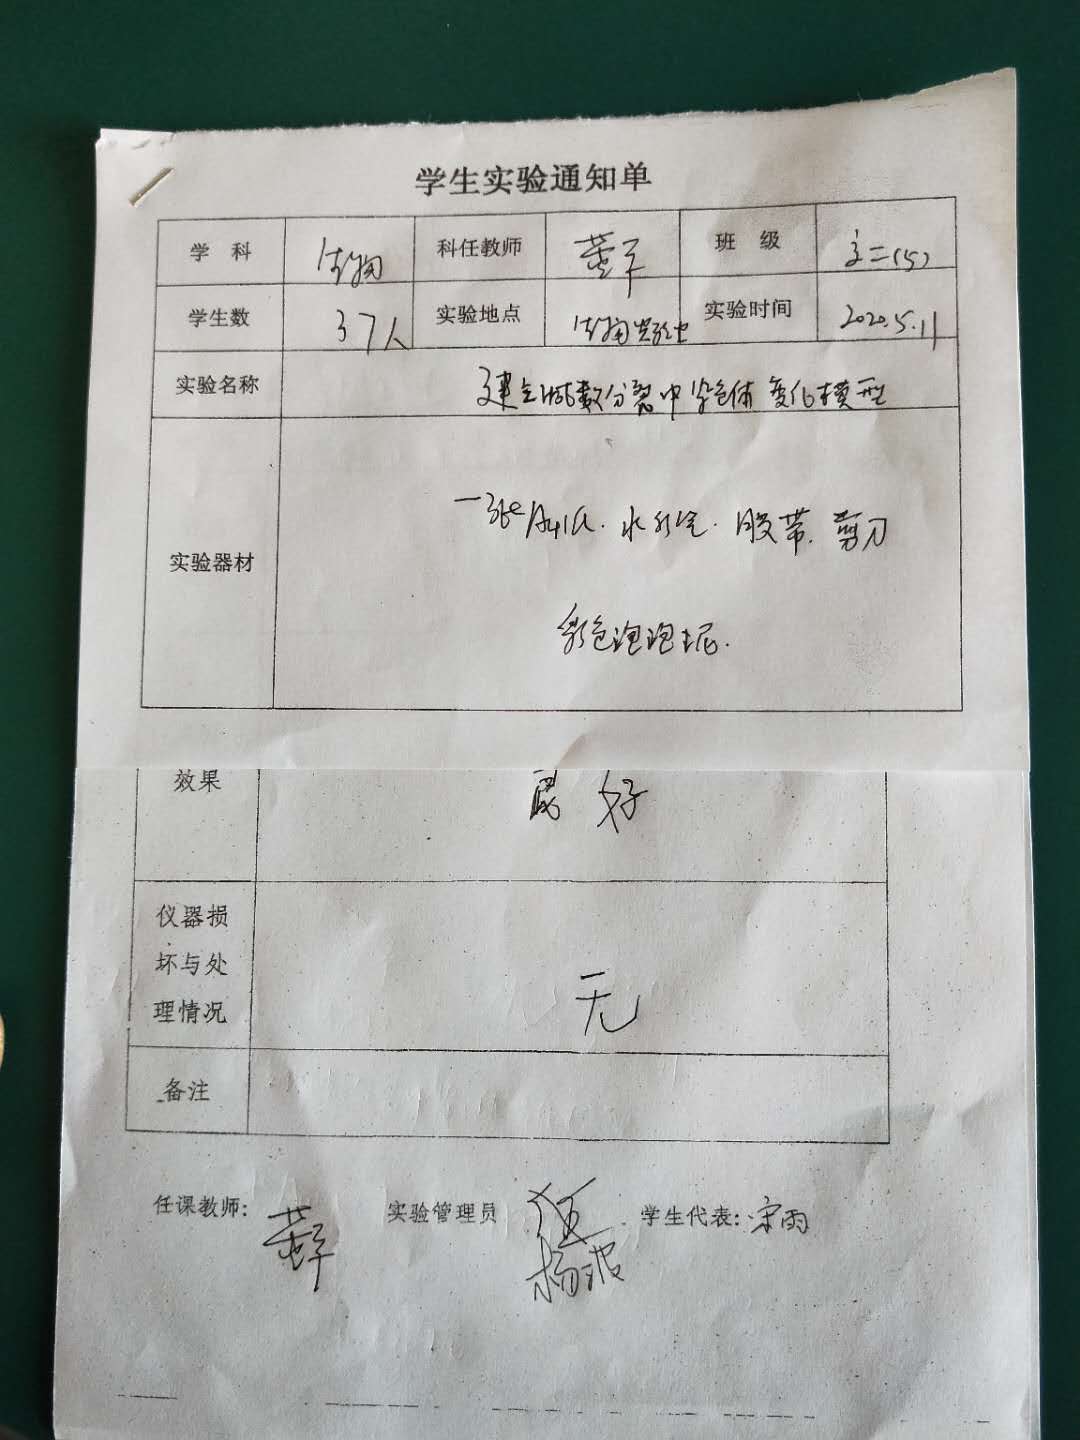 学生实验通知单
学科 生物 科任教师 班级 高二(5)
学生数 37人 实验地点 生物实验室 实验时间 2020.5.11
实验名称 建立减数分裂中染色体变化模型
一张A4纸. 水彩笔. 胶带. 剪刀
实验器材
彩色泡泡泥.
效果 良好
仪器损
坏与处
理情况 无
备注
任课教师: 实验管理员 学生代表: 宋雨
杨波